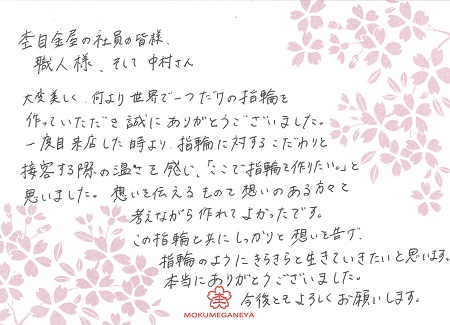 杢目金屋の社員の皆様、
職人様、そして中村さん
大変美しく、何より世界で一つだけの指輪を
作っていただき誠にありがとうございました。
一度目来店した時より、指輪に対するこだわりと
接客する際の温さを感じ、「ここで指輪を作りたい。」と
思いました。想いを伝えるもので想いのある方々と
考えながら作れてよかったです。
この指輪と共にしっかりと想いを告げ、
指輪のようにきらきらと生きていきたいと思います。
本当にありがとうございました。
今後ともよろしくお願いします。
MOKUMEGANEYA